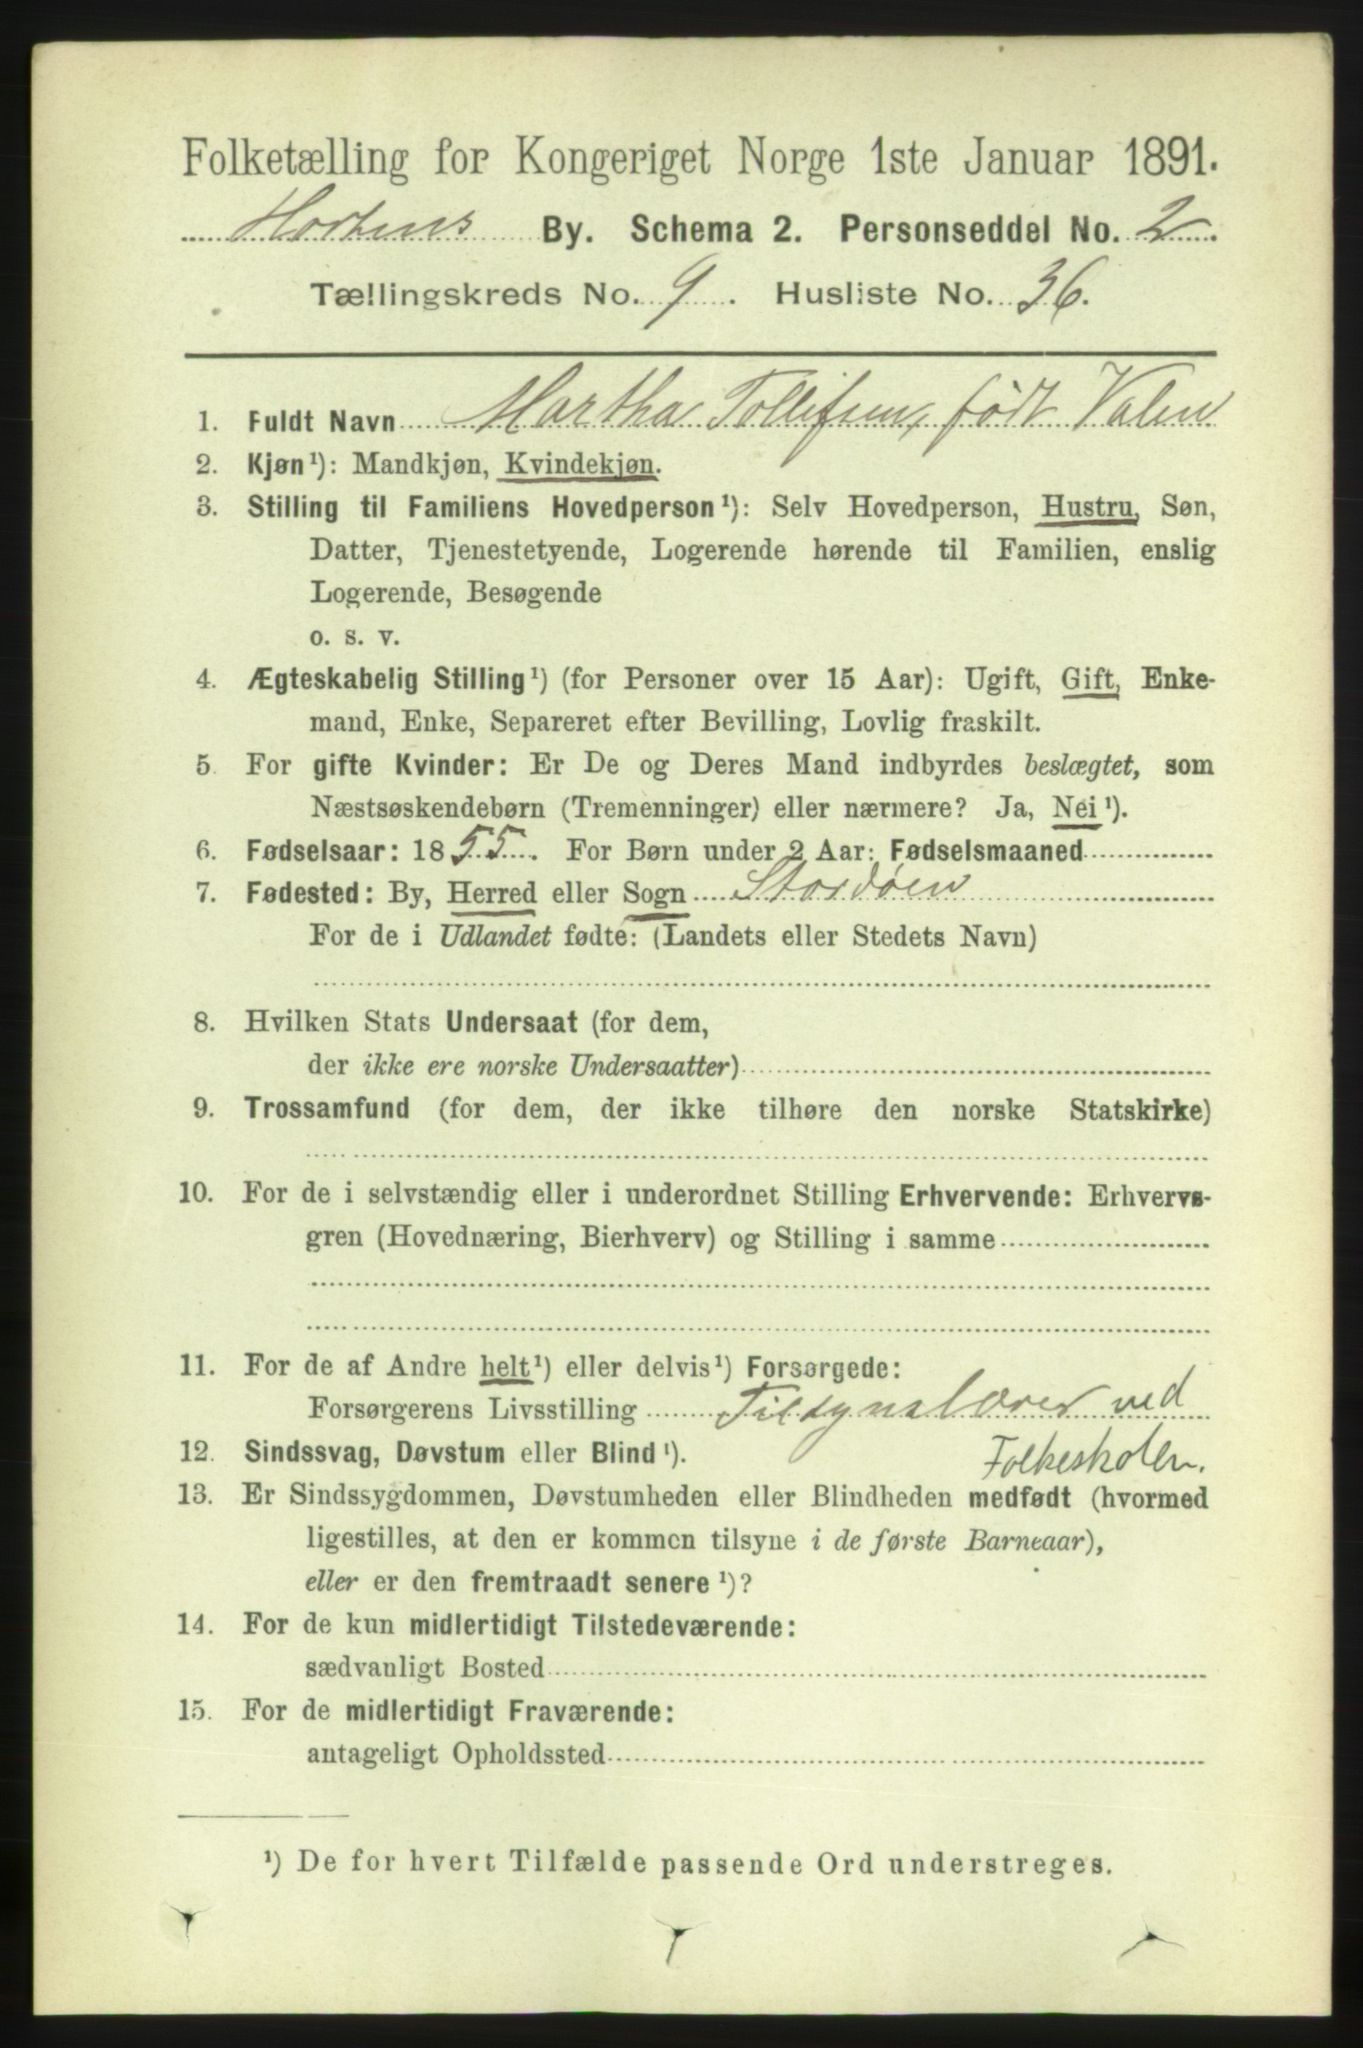 Folketælling for Kongeriget Norge 1ste Januar 1891.
Hortens By. Schema 2. Personseddel No. 2.
Tællingskreds No. 9. Husliste No. 36.
1. Fuldt Navn Martha Tollefsen, født Valen
2. Kjøn¹): Mandkjøn, Kvindekjøn.
3. Stilling til Familiens Hovedperson¹): Selv Hovedperson, Hustru, Søn,
Datter, Tjenestetyende, Logerende hørende til Familien, enslig
Logerende, Besøgende
o. s. v.
4. Ægteskabelig Stilling¹) (for Personer over 15 Aar): Ugift, Gift, Enke-
mand, Enke, Separeret efter Bevilling, Lovlig fraskilt.
5. For gifte Kvinder: Er De og Deres Mand indbyrdes beslægtet, som
Næstsøskendebørn (Tremenninger) eller nærmere? Ja, Nei¹).
6. Fødselsaar: 1855. For Børn under 2 Aar: Fødselsmaaned
7. Fødested: By, Herred eller Sogn Stordøen
For de i Udlandet fødte: (Landets eller Stedets Navn)
8. Hvilken Stats Undersaat (for dem,
der ikke ere norske Undersaatter)
9. Trossamfund (for dem, der ikke tilhøre den norske Statskirke)
10. For de i selvstændig eller i underordnet Stilling Erhvervende: Erhvervs-
gren (Hovednæring, Bierhverv) og Stilling i samme
11. For de af Andre helt¹) eller delvis¹) Forsørgede:
Forsørgerens Livsstilling Tilsynslærer ved
Folkeskolen.
12. Sindssvag, Døvstum eller Blind¹).
13. Er Sindssygdommen, Døvstumheden eller Blindheden medfødt (hvormed
ligestilles, at den er kommen tilsyne i de første Barneaar),
eller er den fremtraadt senere¹)?
14. For de kun midlertidigt Tilstedeværende:
sædvanligt Bosted
15. For de midlertidigt Fraværende:
antageligt Opholdssted
¹) De for hvert Tilfælde passende Ord understreges.